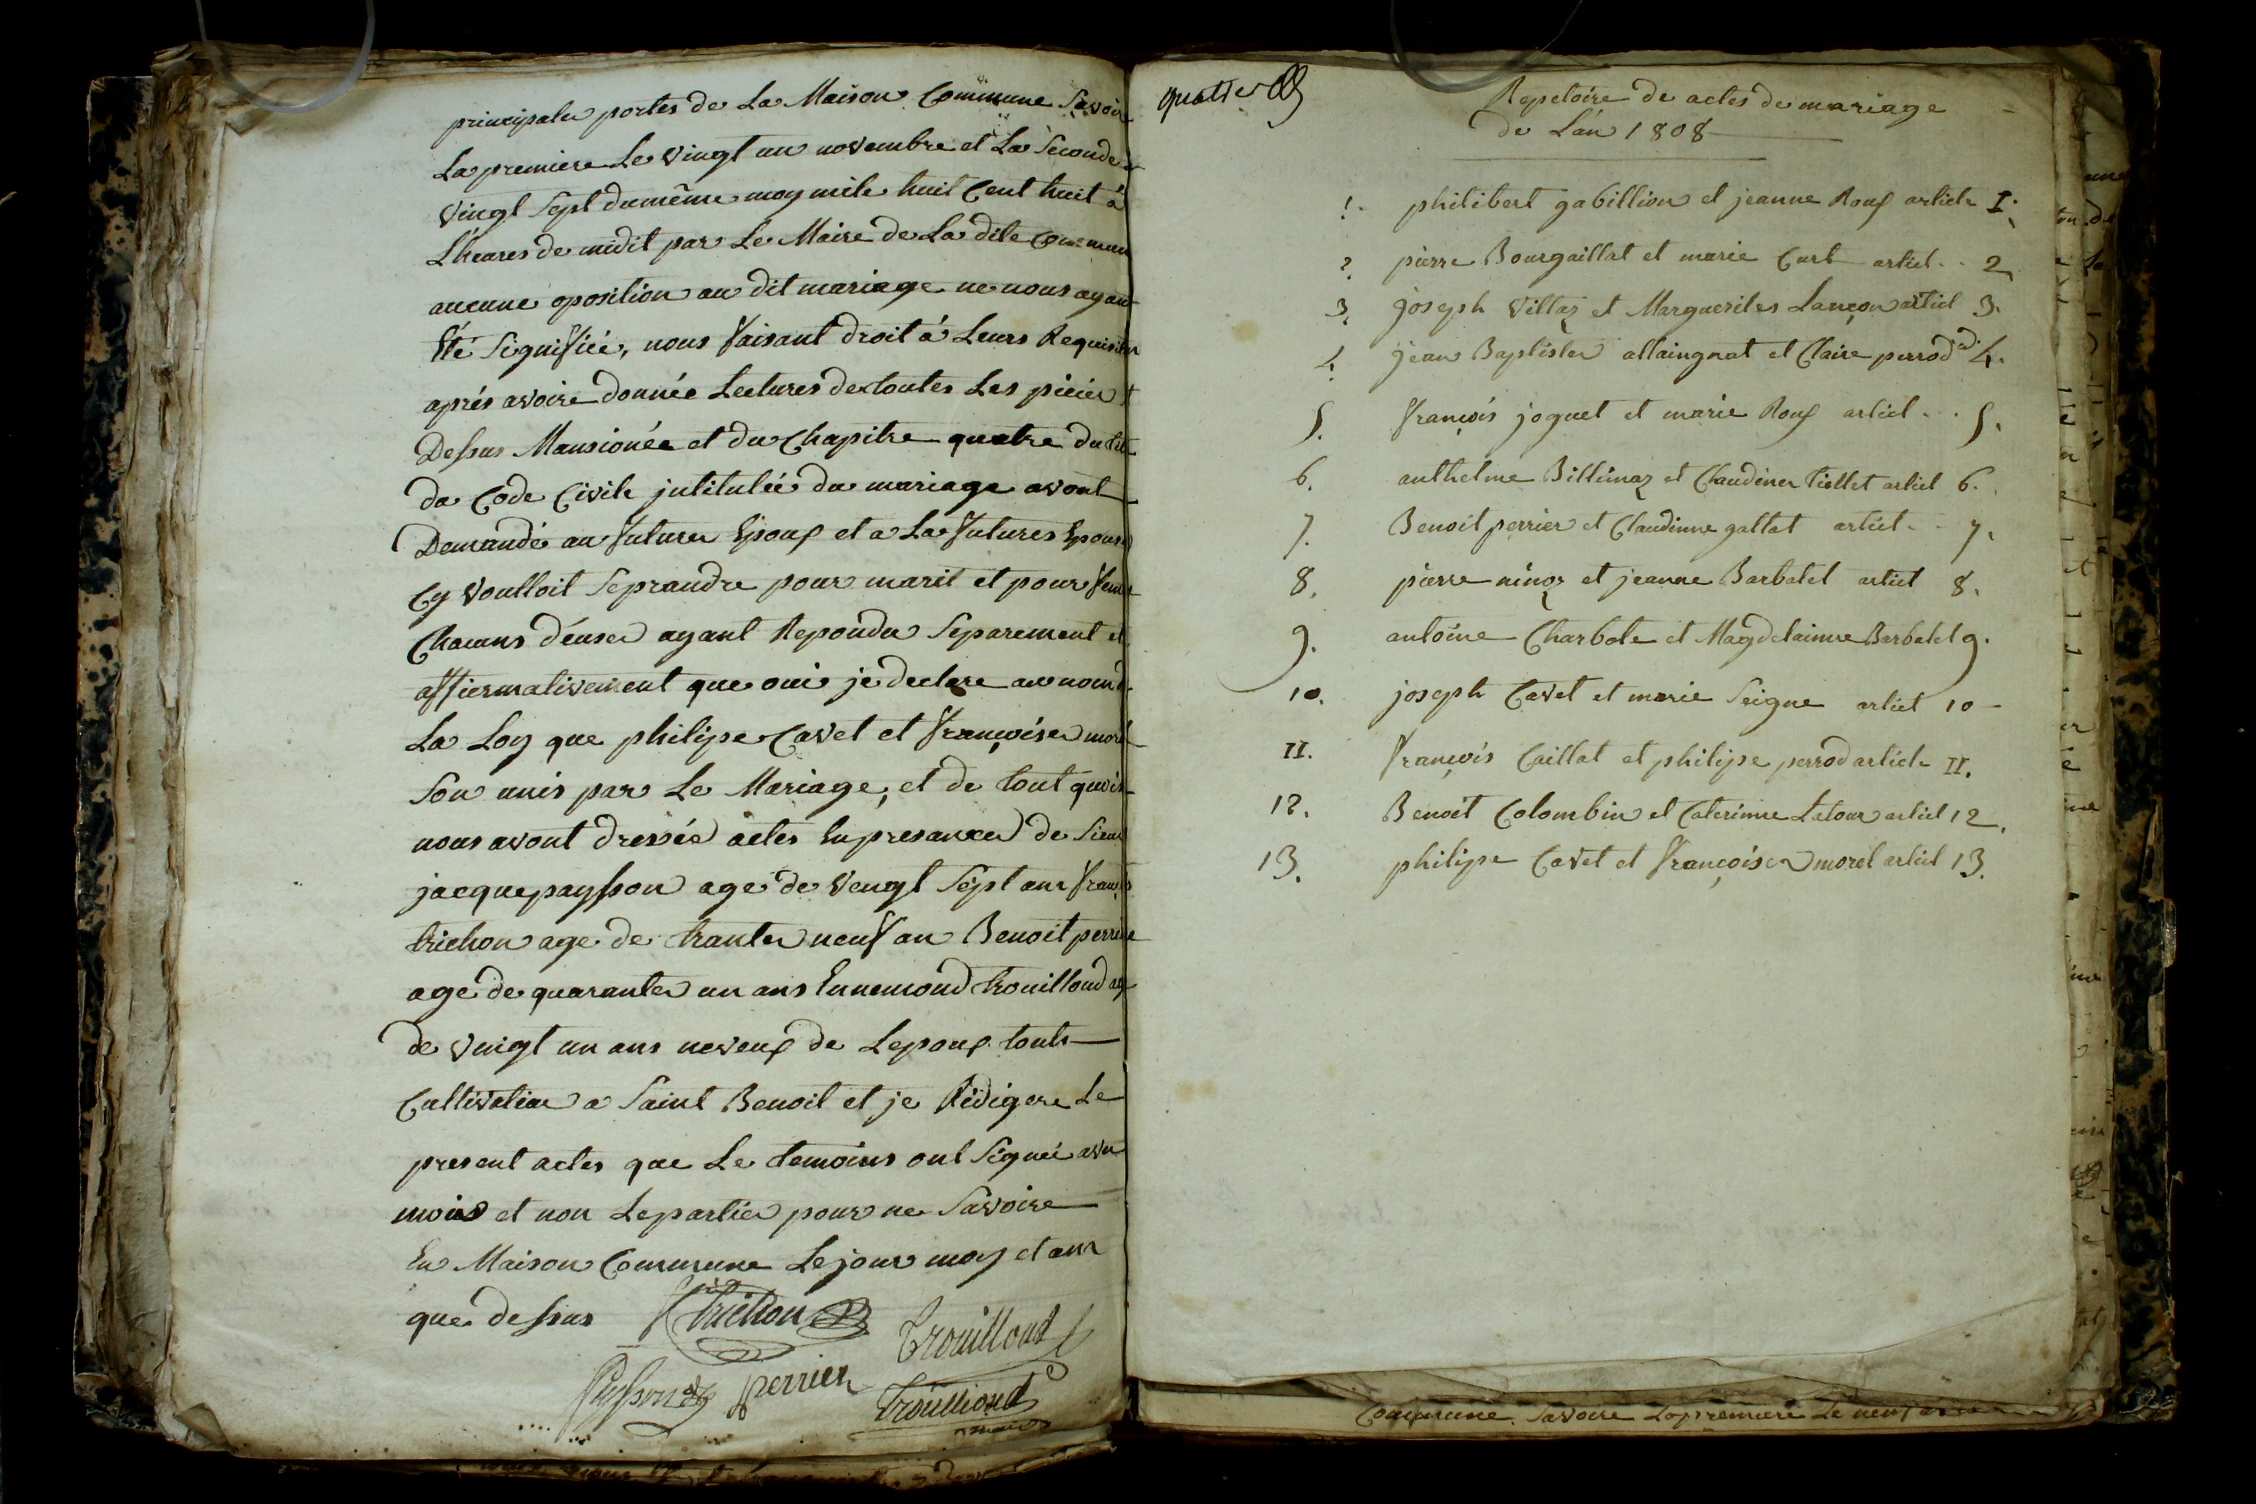 principales portes de La Maison Commune Savoir
La premiere Le vingt un novembre et La Seconde
vingt Sept du même moy mile huit Cent huit à
Lheures de midit par Le Maire de La dite Commun
aucune oposition au dit mariage ne nous ayant
Eté Signifiée, nous faisant droit à Leurs Requisition
aprés avoire donnée Lectures de toutes Les piéces
Dessus Mansionée et du Chapitre quatre du
du Code Civile jntitulée du mariage avont
Demandé au futures Epoux et a La futures Epouse
Cy voulloit Seprandre pour marit et pour fem
Chacuns d'euser ayant Repondu Separement et
affiermativement que oui je declare au nom d
La Loy que philipe Cavet et françoise morel
Son unis par Le Mariage, et de tout quoi
nous avont dressée actes En presances de Sieur
jacque paysson age de vengt Sept ans françois
trichon age de trante neuf an Benoit perrier
age de quarante un ans Ennemond trouilloud age
de vingt un ans neveux de Lepoux touts
Cultivatiur a Saint Benoit et je Rédigere Le
present actes que Le temoins ont Signée avec
mois et non Le parties pour ne Savoire
En Maison Commune Le jour moy et an
que dessus trichon Trouilloud
Paysson perrier Trouilloud
maire
quatre
Repetoire de actes de mariage
de L'án 1808
1. philibert gabillion et jeanne Roux article I.
2. pierre Bourgaillat et marie Curt articl. 2
3. joseph villaz et Marguerites Lançon articl 3.
4. jean Baptiste allaingrat et Claire perrod id. 4.
5. françois joguet et marie Roux articl. 5.
6. anthelme Billimaz et Claudine tiollet articl 6.
7. Benoit perrier et Claudinne gallat articl. 7.
8. pierre ninoz et jeanne Barbatet articl 8.
9. antoine Charbote et Magdelainne Barbatet 9.
10. joseph Cavet et marie Seigne articl 10
II. françois Caillat et philipe perrod article II.
12. Benoit Colombin et Caterinne Latour articl 12.
13. philipe Cavet et françoise morel articl 13.
Commune Savoire La premiere Le neuf